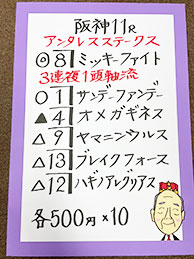 阪神11R
アンタレスステークス
◎8 ミッキーファイト
3連複1頭軸流
○1 サンデーファンデー
▲4 オメガギネス
△9 ヤマニンウルス
△13 ブレイクフォース
△12 ハギノアレグリアス
各500円×10